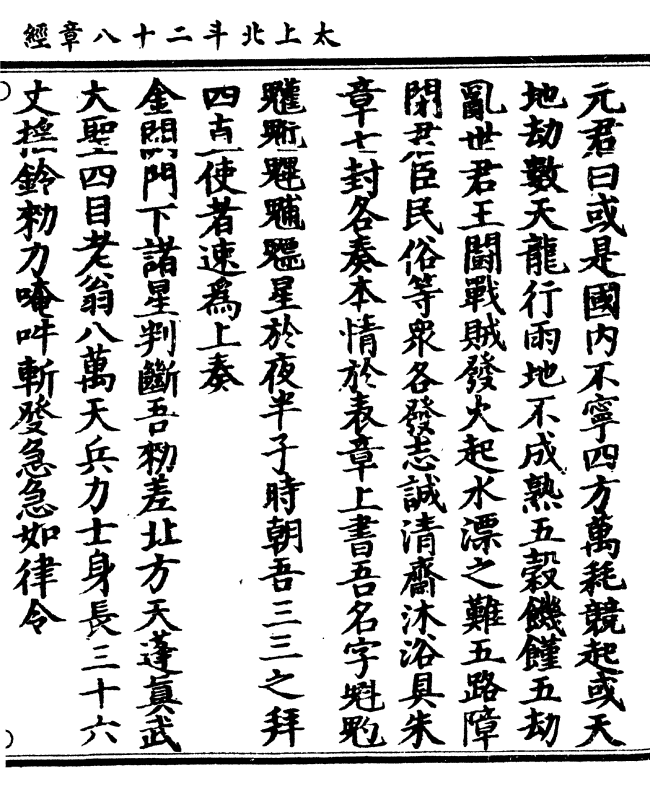 太上北斗二十八章經
元君曰或是國内不寧四方萬耗競起或天
地劫數天龍行雨地不成熟五穀饑饉五劫
亂世君王鬬戰賊發火起水漂之難五路障
閉君臣民俗等衆各發志誠清齋沐浴具朱
章七封各奏本情於表章上書吾名字魁
星於夜半子時朝吾三三之拜
四直使者速爲上奏
金闕門下諸星判斷吾勑差北方天蓬眞武
大聖四目老翁八萬天兵力士身長三十六
丈搖鈴勑力唵吽斬發急急如律令